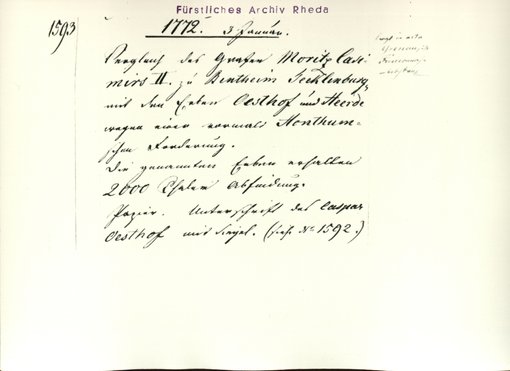 Fürstliches Archiv Rheda
1593
1772. 3 Januar.
Vergleich des Grafen Moritz Casi-
mirs II. zu Bentheim Tecklenburg
mit den Erben Oesthof und Heerde
wegen einer vormals Honthum-
schen Forderung.
Die genannten Erben erhalten
2000 Thaler Abfindung.
Papier. Unterschrift des Caspar
Oesthof mit Siegel. (siehe No 1592.)